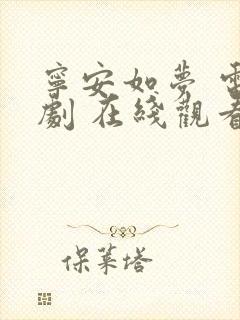 寧安如夢 電
劇 在綫觀看
保萊塔